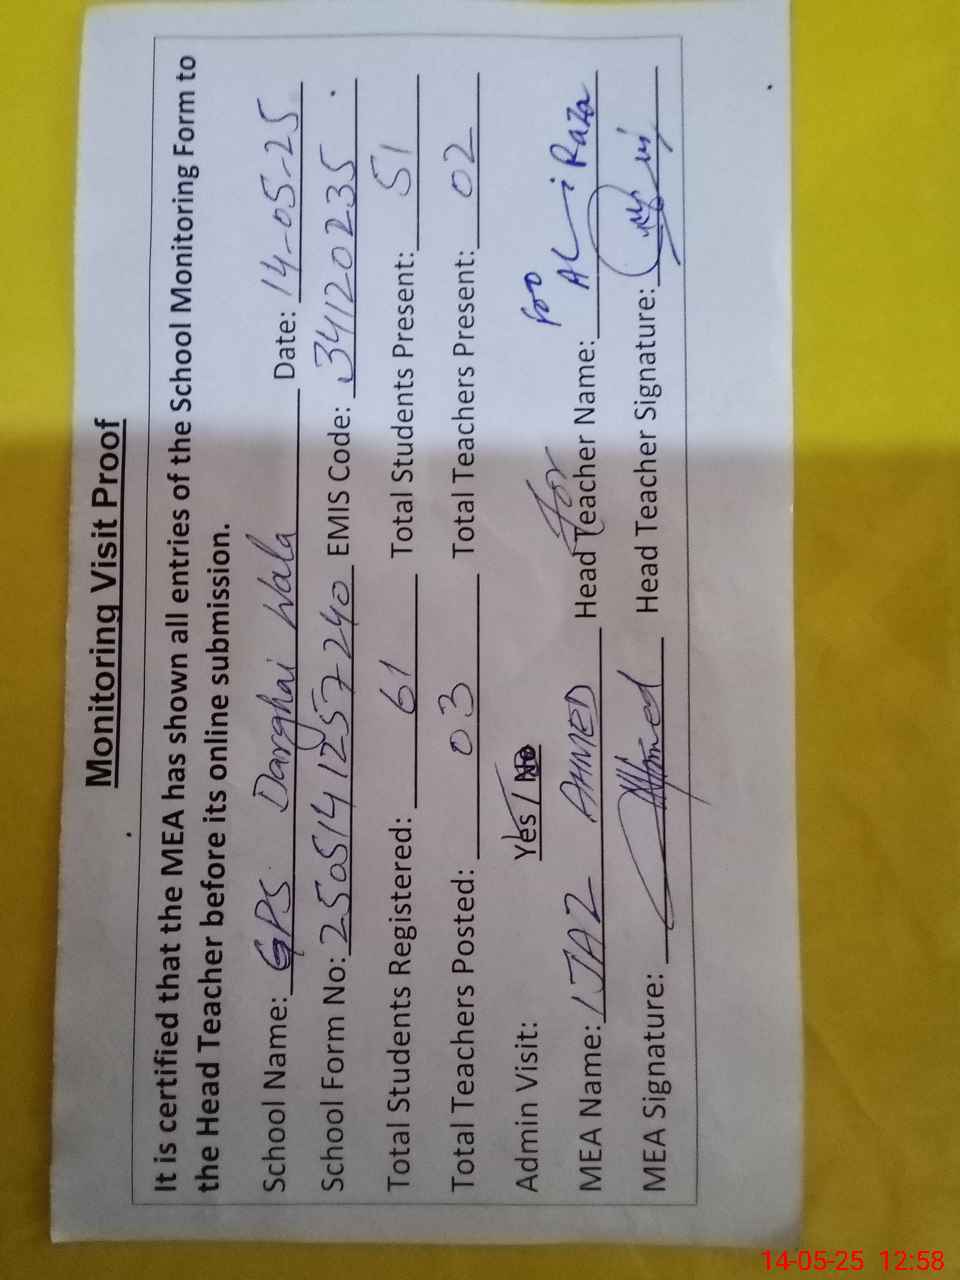 Monitoring Visit Proof
It is certified that the MEA has shown all entries of the School Monitoring Form to
the Head Teacher before its online submission.
School Name: GPS Darghai Wala Date: 14-05-25
School Form No: 2505141257240 EMIS Code: 34120235
Total Students Registered: 61 Total Students Present: 51
Total Teachers Posted: 03 Total Teachers Present: 02
Admin Visit: Yes / No for
MEA Name: IJAZ AHMED Head Teacher Name: Ali Raza
MEA Signature: Ahmed Head Teacher Signature:
14-05-25 12:58